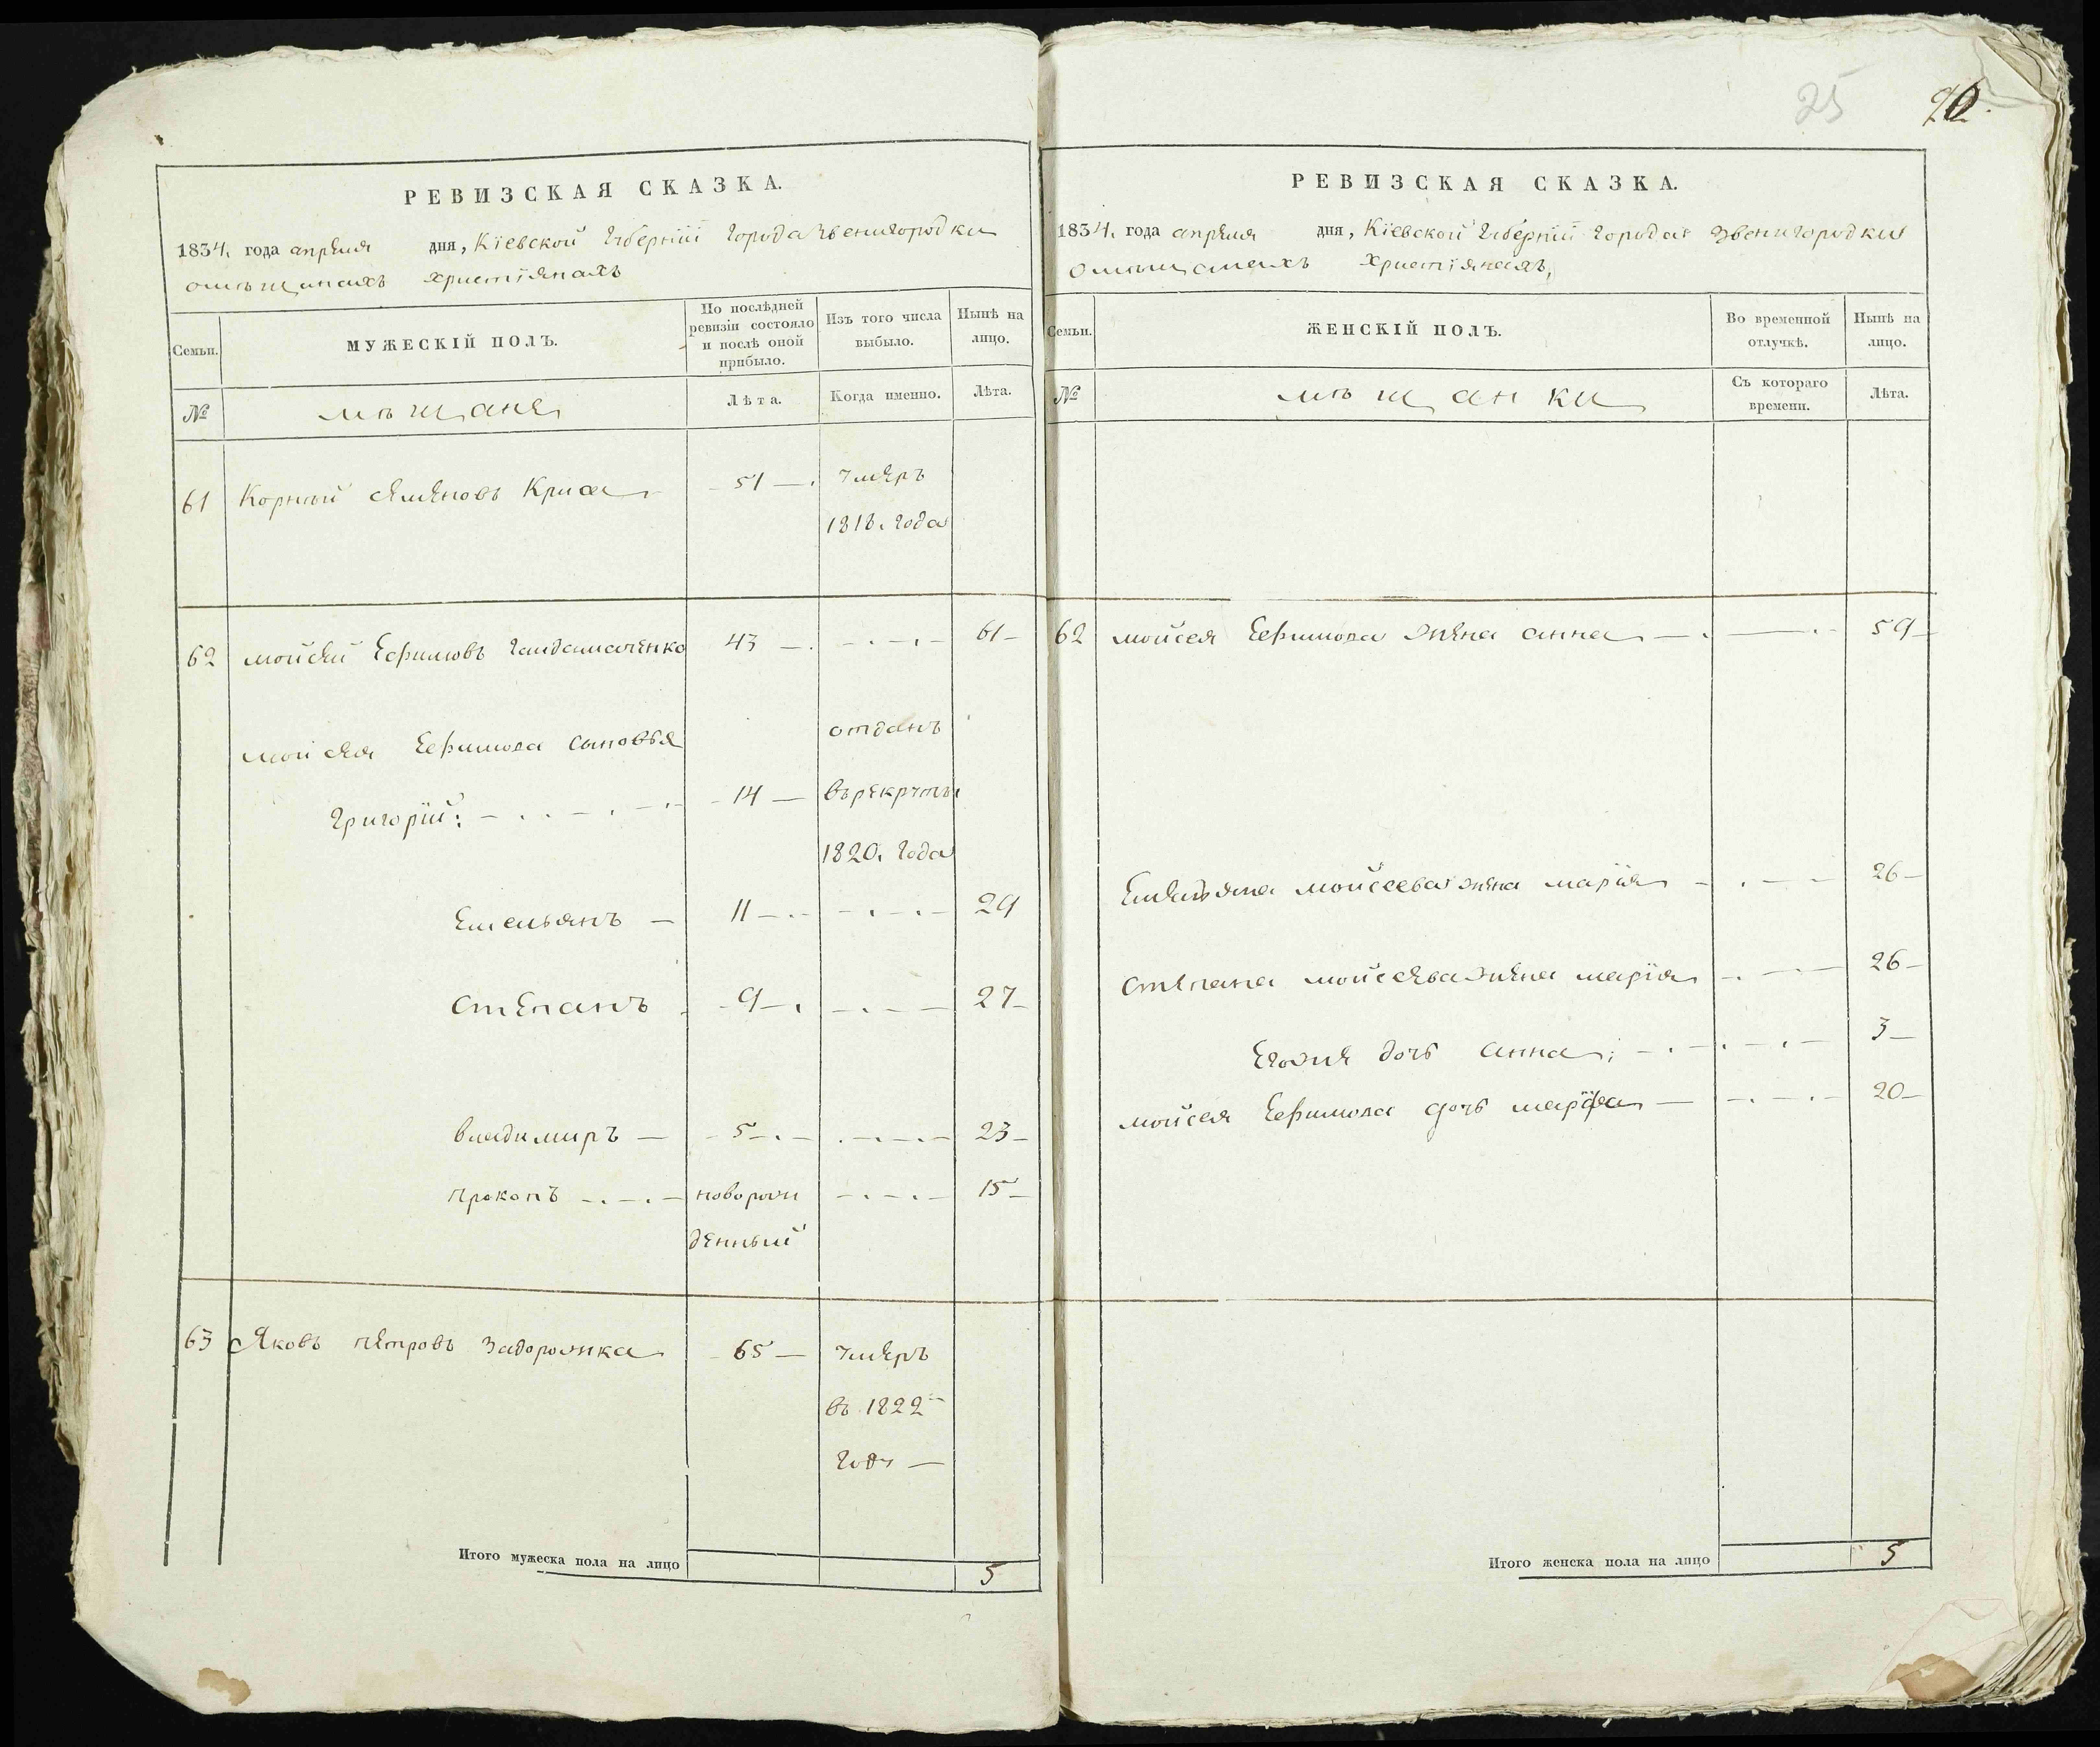 25 22.
РЕВИЗСКАЯ СКАЗКА.
1834. года апреля дня, Кіевской Губерніи города Звенигородки
о мѣщанахъ христіянахъ
Семьи. МУЖЕСКІЙ ПОЛЪ. По послѣдней ревизіи состояло и послѣ оной прибыло. Изъ того числа выбыло. Нынѣ на лицо.
№ мѣщане Лѣта. Когда именно. Лѣта.
61 Корнѣй Семеновъ Криса 51 умеръ
1818. года
62 мойсей Ефимовъ Гайдамаченко 43 61
мойсея Ефимова сыновья отданъ
Григорій: 14 въ рекруты
1820. года
Емельянъ 11 29
Степанъ 9 27
Владимиръ 5 23
Прокопъ новорож 15
денный
63 Яковъ Петровъ Задорожка 65 умеръ
въ 1822
году
Итого мужеска пола на лицо 5
РЕВИЗСКАЯ СКАЗКА.
1834. года апреля дня, Кіевской Губерніи города Звенигородки
о мѣщанахъ христіянахъ,
Семьи. ЖЕНСКІЙ ПОЛЪ. Во временной отлучкѣ. Нынѣ на лицо.
№ мѣщанки Съ котораго времени. Лѣта.
62 мойсея Ефимова жена анна 59
Емельяна мойсеева жена марія 26
Степана мойсеева жена марія 26
Егоже дочь анна: 3
мойсея Ефимова дочь марфа 20
Итого женска пола на лицо 5